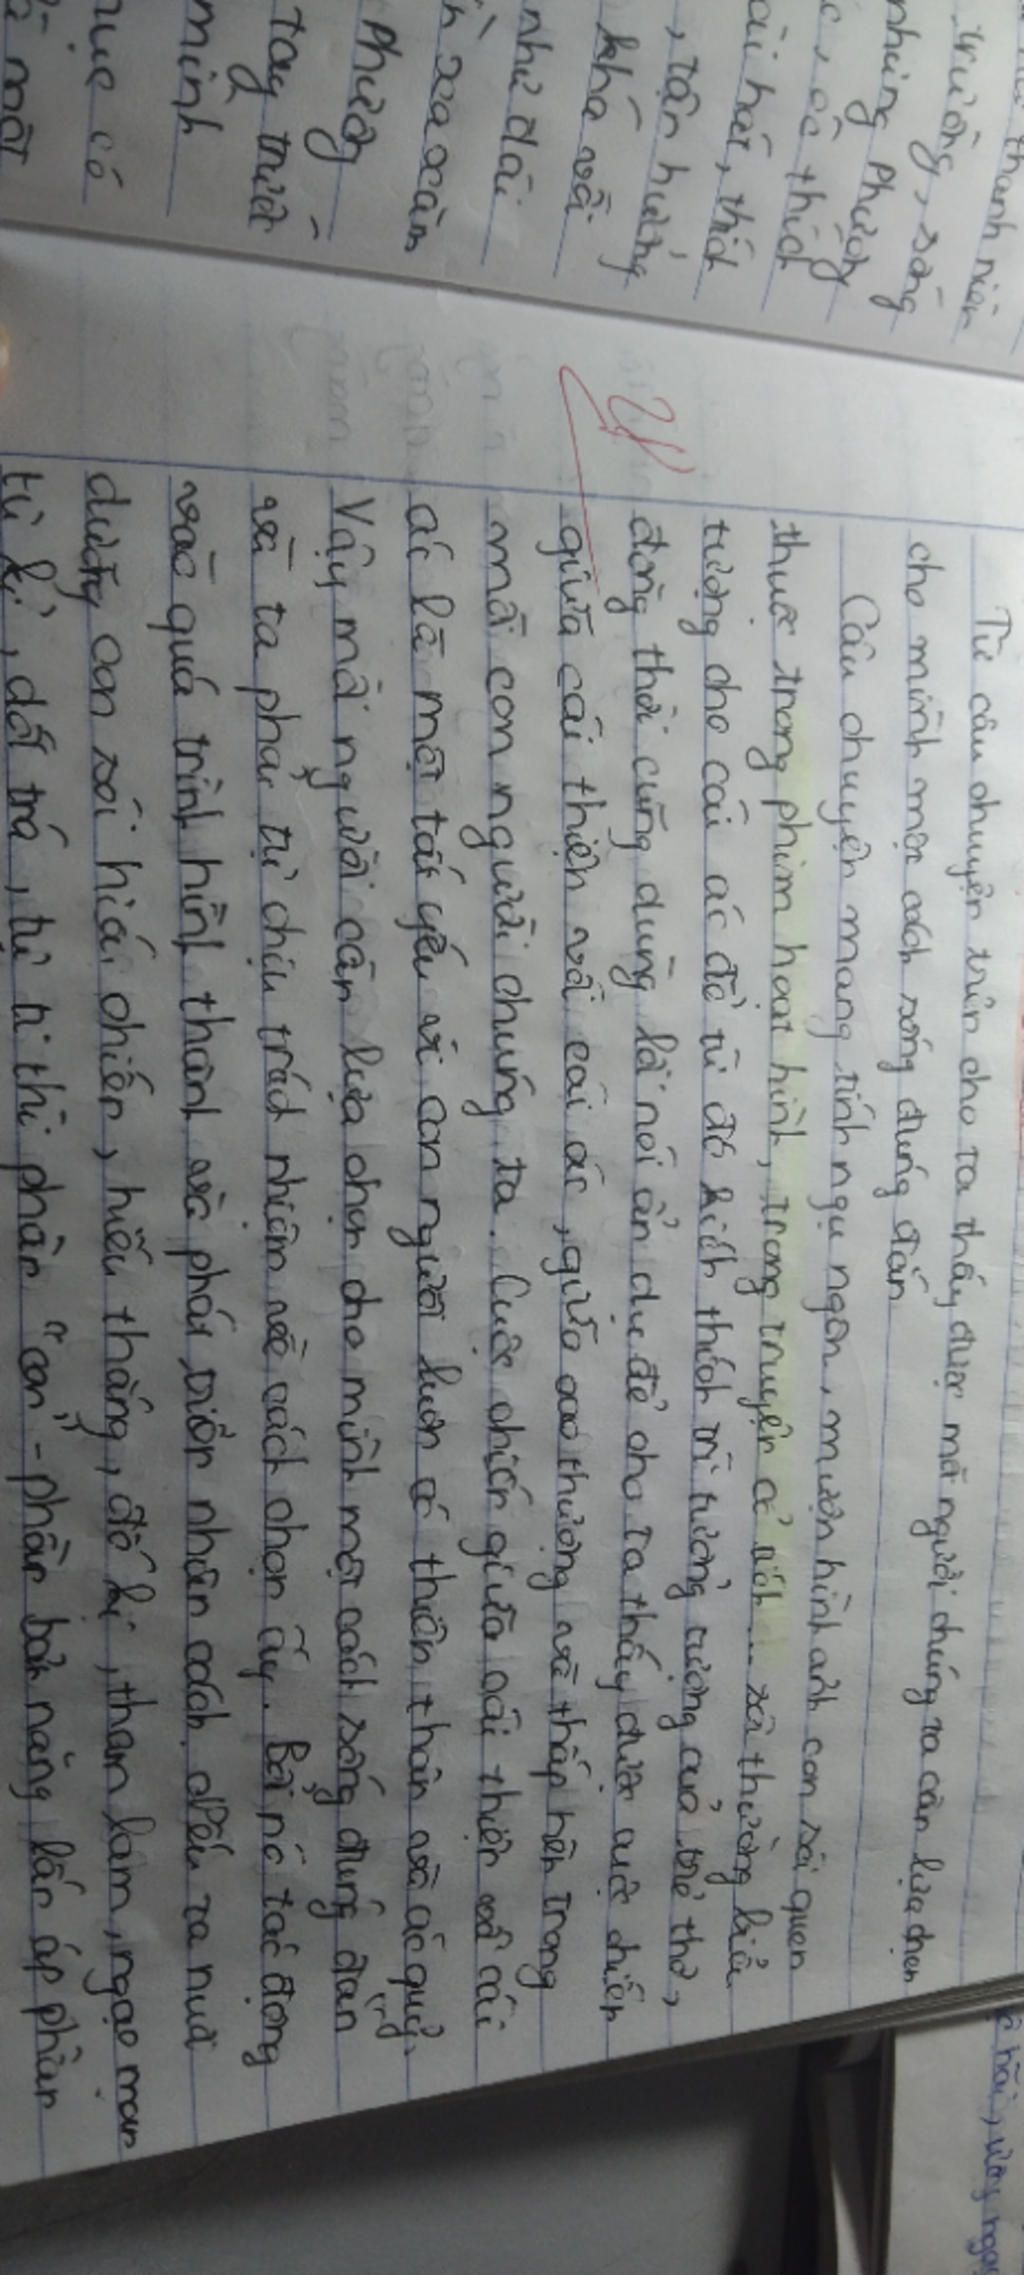 thanh niên
trường, sống
những Phương
thích
bài hát, thích
, tận hưởng
khó với
như dải
xa xăm
Phương
tay trước
mình
có
một
Từ câu chuyện trên cho ta thấy được mà người chúng ta cần lựa chọn
cho mình một cách sống đúng đắn
Câu chuyện mang tính ngụ ngôn, mượn hình ảnh con sói quen
thuộc trong phim hoạt hình, trong truyện cổ tích... và thường biểu
tượng cho cái ác để từ đó kích thích trí tưởng tượng của trẻ thơ,
đồng thời cũng dùng lối nói ẩn dụ để cho ta thấy được cuộc chiến
giữa cái thiện với cái ác, giữa cao thượng và thấp hèn trong
mỗi con người chúng ta. Cuộc chiến giữa cái thiện với cái
ác là một tất yếu vì con người luôn có thiên thần và ác quỷ.
Vậy mà người cần lựa chọn cho mình một cách sống đúng đắn
và ta phải tự chịu trách nhiệm về cách chọn ấy. Bởi nó tác động
vào quá trình hình thành và phát triển nhân cách. Nếu ta nuôi
dưỡng con sói hiếu chiến, hiếu thắng, đố kị, tham lam, ngạo mạn
tù kỉ, dối trá, tự ti thì phần "con" - phần bản năng lấn áp phần